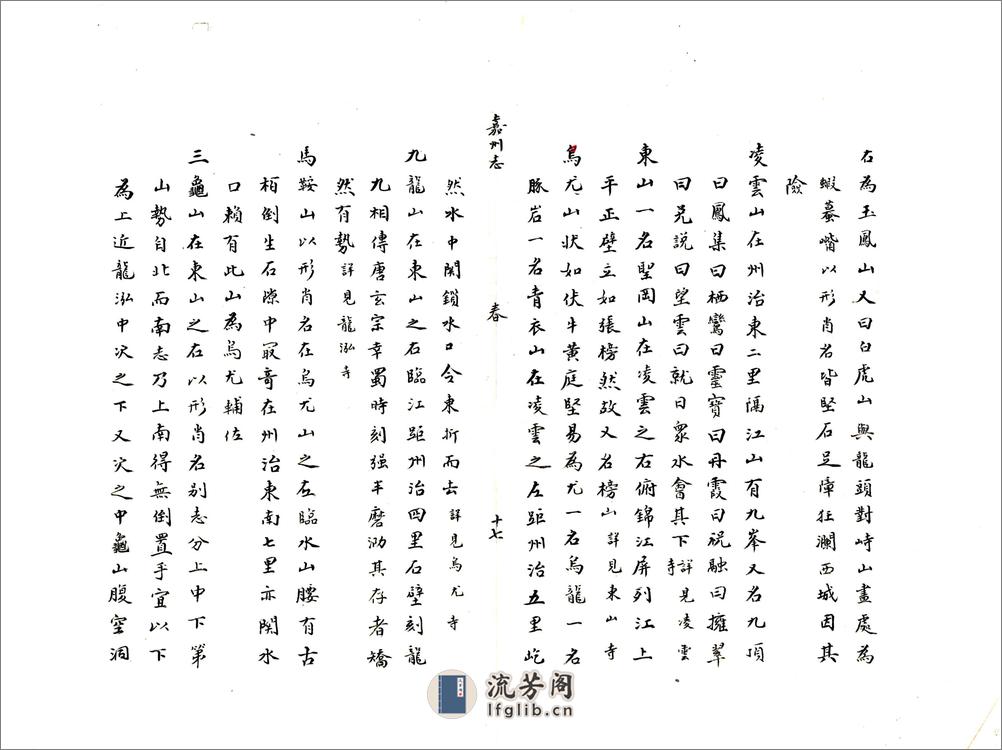 右為玉鳳山又曰白虎山與龍頭對峙山盡處為
蝦蟇嘴以形肖名皆堅石足障狂瀾西城因其
險
凌雲山在州治東二里隔江山有九峯又名九頂
曰鳳集曰栖鸞曰靈寶曰丹霞曰祝融曰擁翠
曰兌說曰望雲曰就日衆水會其下詳見凌雲寺
東山一名聖岡山在凌雲之右俯錦江屏列江上
平正壁立如張榜然故又名榜山詳見東山寺
烏尤山狀如伏牛黄庭堅易為尤一名烏龍一名
豚岩一名青衣山在凌雲之左距州治五里屹
嘉州志 春 十七
然水中関鎖水口令東折而去詳見烏尤寺
九龍山在東山之右臨江距州治四里石壁刻龍
九相傳唐玄宗幸蜀時刻强半磨泐其存者矯
然有勢詳見龍泓寺
馬鞍山以形肖名在烏尤山之左臨水山腰有古
柏倒生石隙中最奇在州治東南七里亦関水
口賴有此山為烏尤輔佐
三龜山在東山之右以形肖名别志分上中下第
山勢自北而南志乃上南得無倒置乎宜以下
為上近龍泓中次之下又次之中龜山腹空洞
流芳阁
lfglib.cn